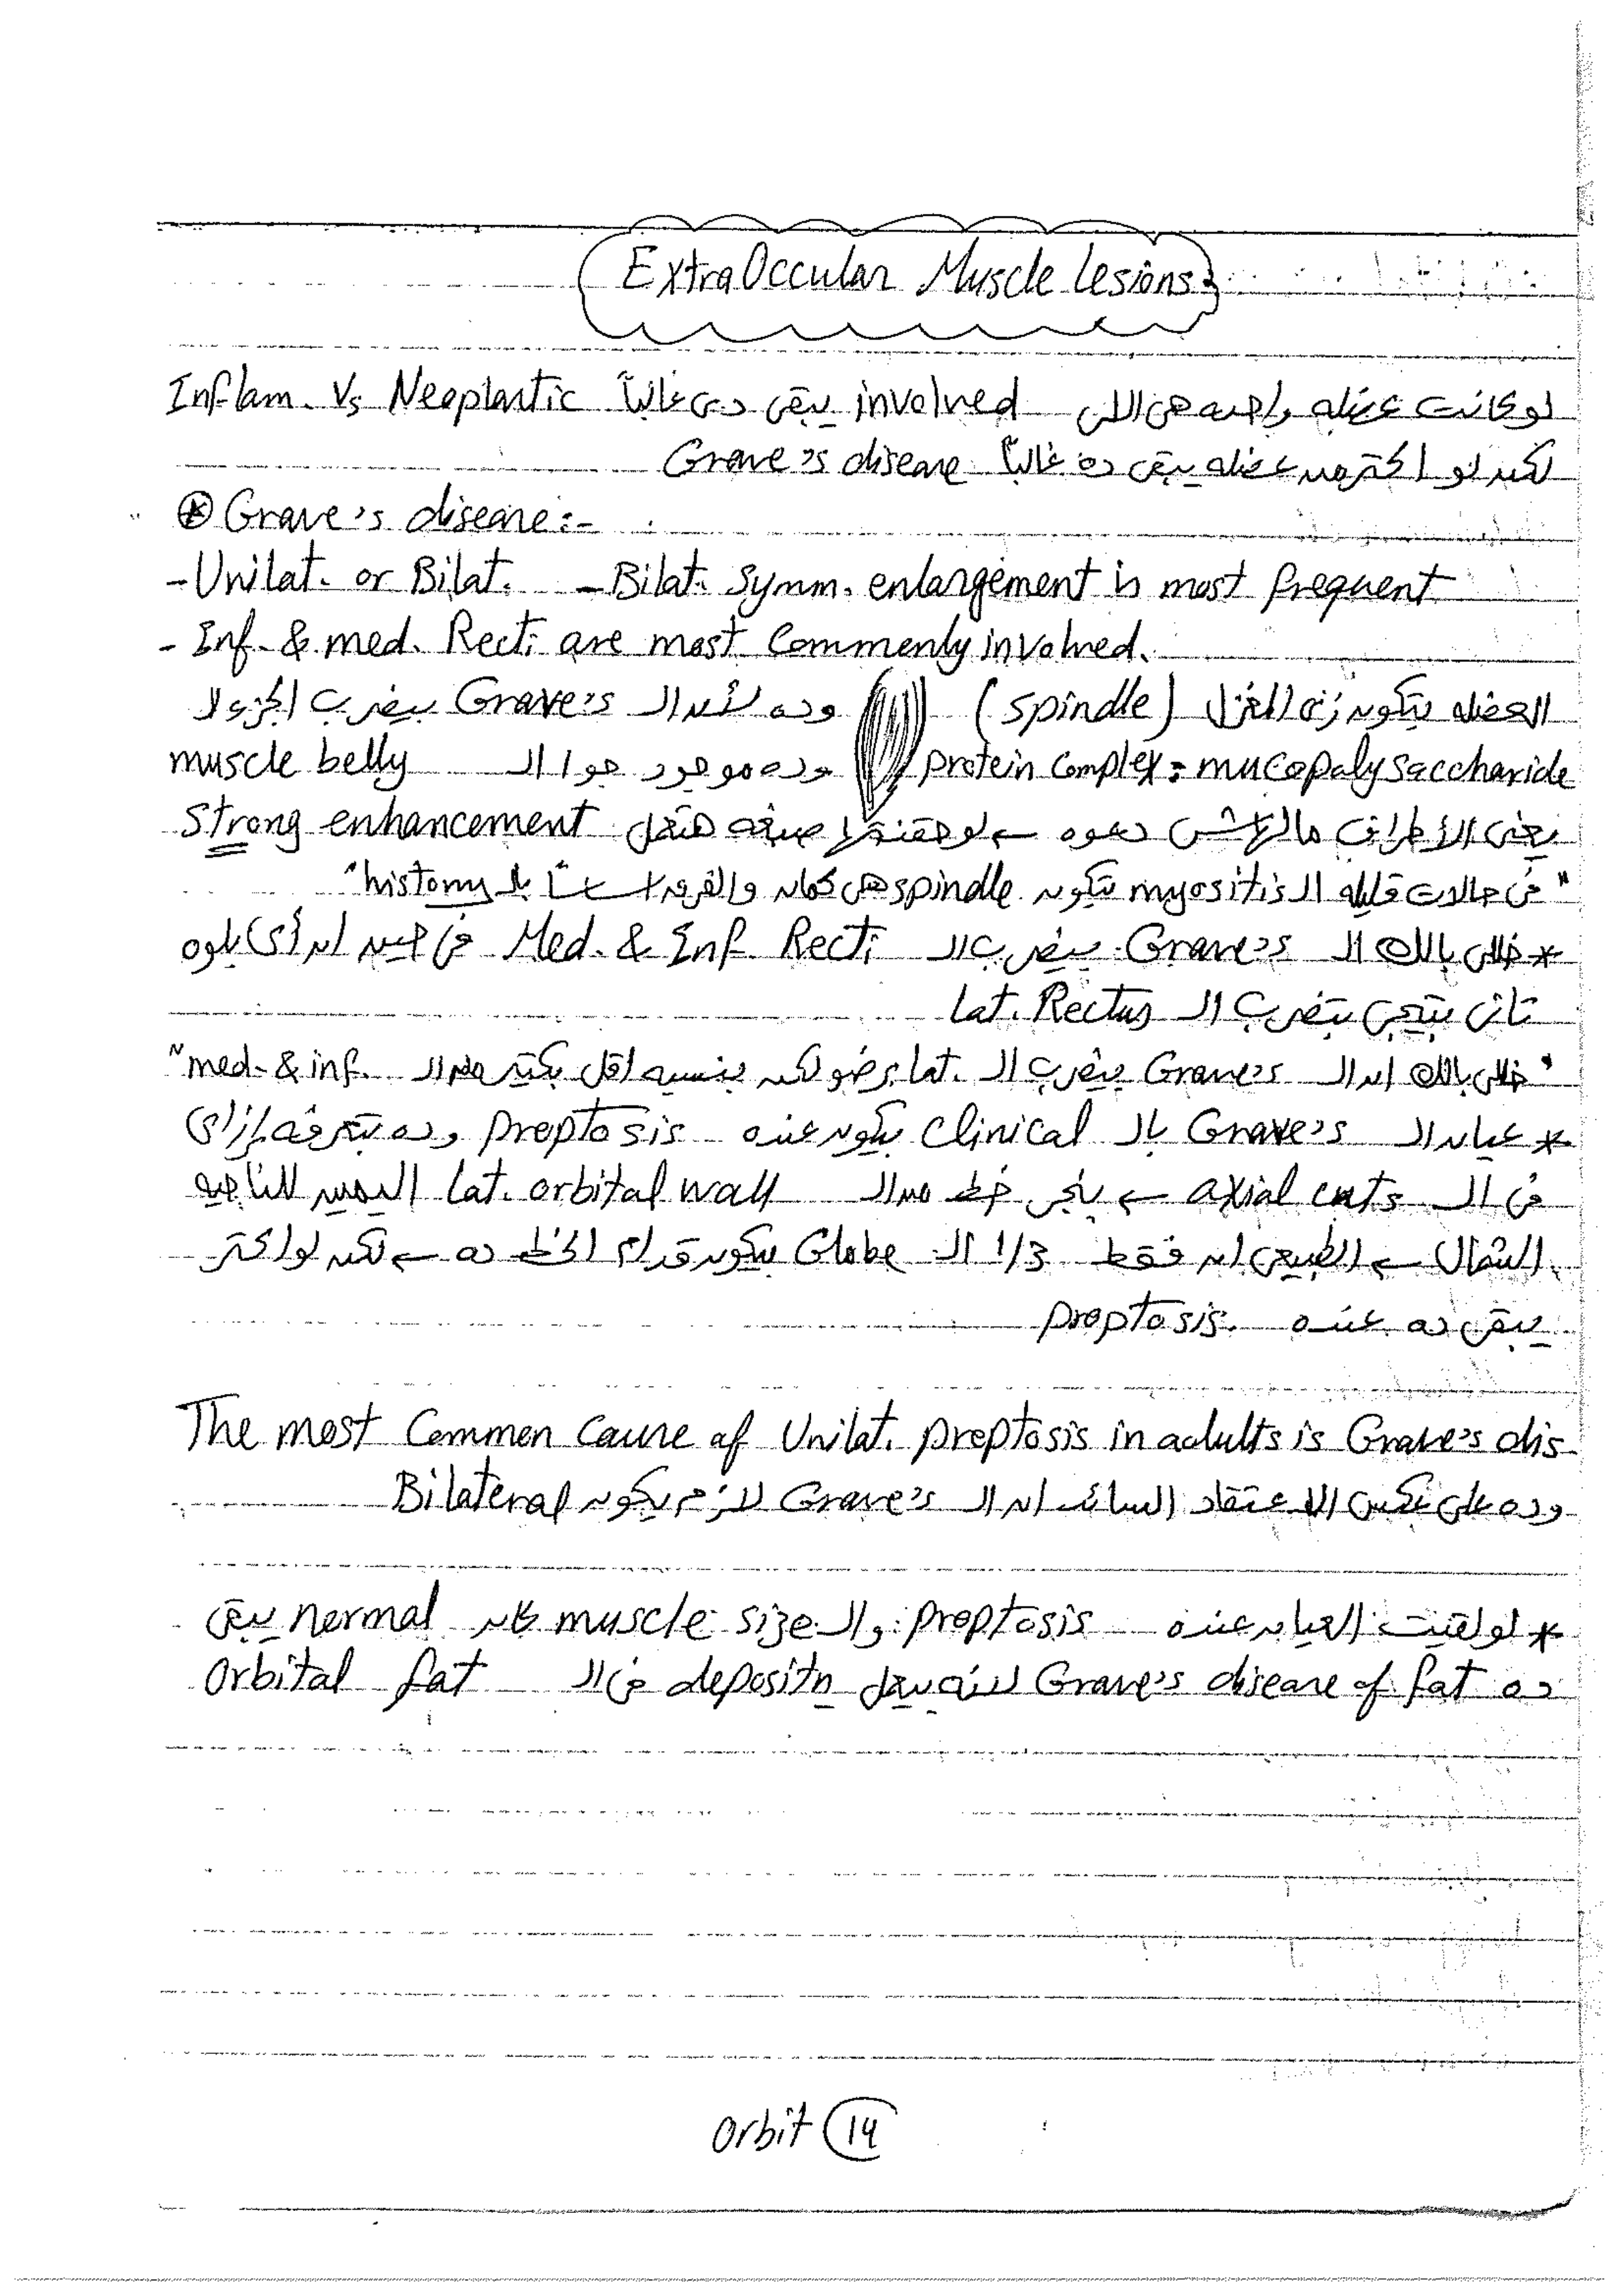 ExtraOccular Muscle Lesions:
لو كانت عضله واحده هى اللى involved يبقى دى غالباً Inflam. Vs Neoplastic
لكن لو اكتر من عضله يبقى ده غالباً Grave's disease
⊛ Grave's disease:-
- Unilat. or Bilat. - Bilat. Symm. enlargement is most frequent
- Inf. & med. Recti are most Commonly involved.
العضله بتكون زى المغزل (spindle) وده لأن ال Grave's بيضرب الجزء ال
protein Complex = mucopolysaccharide وده موجود جوا ال muscle belly
يعنى الأطراف مالهاش دعوه ← لو حقنتها صبغه هتعمل Strong enhancement
"فى حالات قليله ال myositis بتكون spindle هى كمان والفرق اساساً بال history"
* خلى بالك ال Grave's بيضرب ال Med. & Inf. Recti فى حين ان أى بلوه
تانى بتيجى بتضرب ال Lat. Rectus
"خلى بالك ان ال Grave's بيضرب ال Lat. برضو لكن بنسبه اقل بكتير من ال med. & inf."
* عيان ال Grave's بال Clinical بيكون عنده proptosis وده بتعرفه إزاى
فى ال axial cuts ← بنجى خط من ال Lat. orbital wall اليمين للناحيه
الشمال ← الطبيعى ان فقط 1/3 ال Globe بيكون قدام الخط ده ← لكن لو اكتر
يبقى ده عنده proptosis.
The most Common Cause of Unilat. proptosis in adults is Grave's dis-
وده على عكس الاعتقاد السائد ان ال Grave's لازم يكون Bilateral
* لو لقيت العيان عنده proptosis وال muscle size كان normal يبقى
ده Grave's disease of fat لانه بيعمل depositn فى ال Orbital fat
Orbit 14